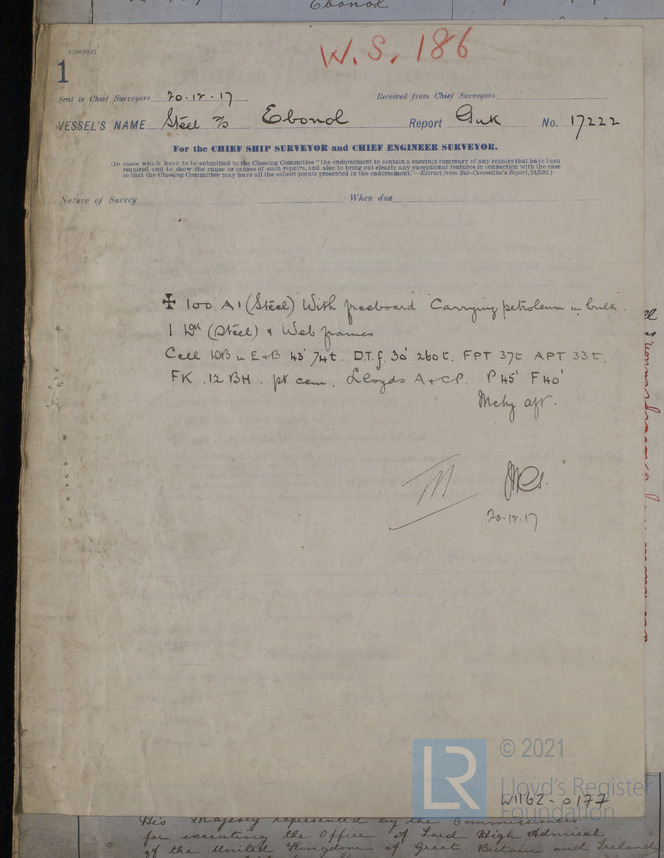 Ebonol
W.S. 186
1
Sent to Chief Surveyors 20.12.17 Received from Chief Surveyors
VESSEL'S NAME Steel Ebonol Report Gnk No. 17222
For the CHIEF SHIP SURVEYOR and CHIEF ENGINEER SURVEYOR.
(In cases which have to be submitted to the Classing Committee "the endorsement to contain a succinct summary of any repairs that have been
required and to show the cause or causes of such repairs, and also to bring out clearly any exceptional features in connection with the case
so that the Classing Committee may have all the salient points presented in the endorsement."—Extract from Sub-Committee's Report,
Nature of Survey When due
✠ 100 A1 (Steel) With freeboard Carrying petroleum in bulk.
1 Dk (Steel) & Web frames
Cell DB u E&B 43' 74t. D.T.f. 30' 260t. FPT 37t APT 33t.
FK. 12 BH. pt cem. Lloyds A&CP. P 45' F 40'
Mchy aft.
20.12.17
LR © 2021
Lloyd's Register
Foundation
W1162-0177
His Majesty represented by the Commissioners
for executing the Office of Lord High Admiral
of the United Kingdom of Great Britain and Ireland